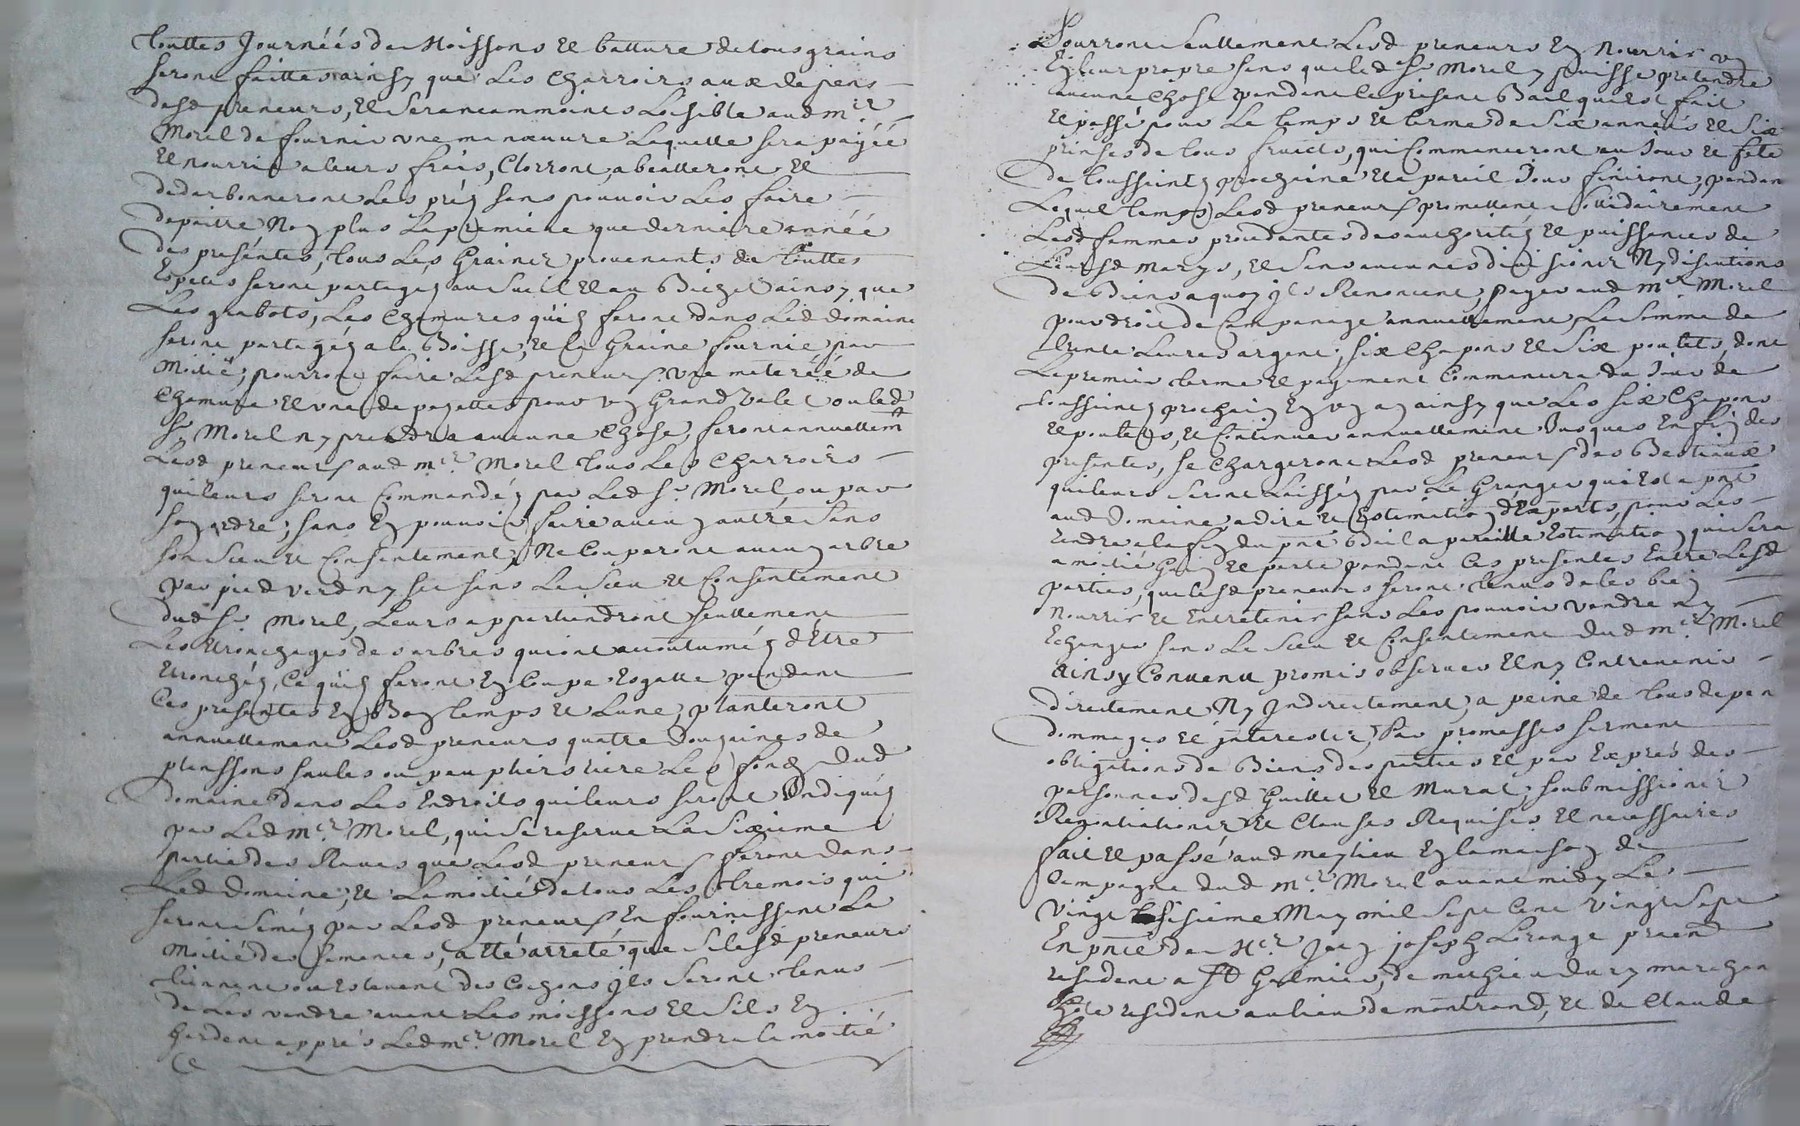 touttes Journéés de Moissons et batture de tous grains
seront faittes ainsy que Les charroirs aux depens
desd preneurs, et sera neammoints Loisible aud mer
Morel de fournir une manœuure Laquelle sera payéé
et nourrie a leurs frais, Clorront abeatteront et
dedarbonneront Les préz sans pouvoir Les faire
depaitre Non plus La premiere que derniere annéé
des preséntes, tous Les Grainez provenants de touttes
Especes seront partagez au Sueil et au Bizet ainsy que
Les grabots, Les chamures qu'ilz feront dans Led domaine
seront partagéz a la Boisse, et la Graine fournie par
Moitié; pourront faire Lesd preneurs une meteréé de
chamure et une de pezettes pour un Grand Valet ou led
Sr Morel ny prendra aucune chose, feront annuellemt
Lesd preneurs aud mer Morel tous Les charroirs
qui leurs seront Commandéz par Led Sr Morel, ou par
son ordre; sans En pouvoir faire aucun autre sans
son sceu et Consentement, Ne Couperont aucun arbre
par pied verd ny sec sans Le sceu et Consentement
dud Sr Morel, Leurs appartiendront seullement
Les etronchages des arbres qui ont accoutuméz d'Etre
etronchéz, ce qu'ilz feront En Coupe Esgalle pendant
Ces presentes En Bon temps et Lune, planteront
annuellement Lesd preneurs quatre Douzaines de
planssons saules ou peupliers riere Les fonds Dud
Domaine dans Les Endroits qui leurs seront Indiquéz
par Led mer Morel, qui se reserve La Sixieme
partie des Raues que Lesd preneurs feront dans
Led Domaine; et La moitié de tous Les tremois qui
seront seméz par Lesd preneurs En fournissant La
Moitié des semences, a eté arreté que si lesd preneurs
tiennent ou Eslevent des Cochons jls seront tenus
de Les vendre avant Les moissons et sils En
gardent apprés Led mer Morel En prendra la moitié
Pourront seullement Lesd preneurs En Nourrir un
En leur propre sans que led Sr Morel y puisse pretendre
aucune chose pendant Ce present Bail qui Est fait
et passé pour Le temps et terme de Six annéés et Six
prinses de tous fruicts, qui Commanceront au Jour et fete
de toussaintz prochaine et a pareil Jour finiront, pendant
Lequel temps Lesd preneurs promettent sollidairement
Lesd femmes procedantes des authoritéz et puissances de
Leursd Marys, et sans aucunes divisionez Ny disentions
de Biens a quoy jls Renoncent, payer aud mer Morel
pour droit de Companage annuellement La Somme de
trente Liures d'argent, six chapons et Six poulets, dont
Le premier terme et payement Commancera du Jour de
toussaintz prochain En un an ainsy que Les six chapons
et poulets, et Continuer annuellement Jusques En fin des
presentes, se chargeront Lesd preneurs des Bestiaux
qui leurs seront Laisséz par Le Granger qui Est a pnt
aud Domaine, a dire et Estimation d'Experts, pour Les
rendre a la fin du pnt Bail a pareille Estimation qui sera
a moitié Gain et perte pendant Ces presentes Entre Lesd
parties, que lesd preneurs seront tenus de les bien
Nourrir et Entretenir sans Les pouvoir vendre ny
Echanger sans Le Sceu et Consentement Dud mer Morel
Ainsy Convenu promis observer et ny Contrevenir
directement Ny Indirectement, a peine de tous depens
dommages et jnterestz, Par promesses serment
obligations de Biens des parties et par Exprés des
personnes desd Guillet et Murat; soubmissionez
Renontiationez et Clauses Requises et necessaires
fait et passé aud meylieu En la maison de
Campagne dud mer Morel avant midy Le
vingt sisieme May mil sept Cent vingt sept
En pnce de Mer Jean joseph Lorange praen
resident a St Galmier, de mathieu dury marchan
hote resident au lieu de montrond, et de Claude